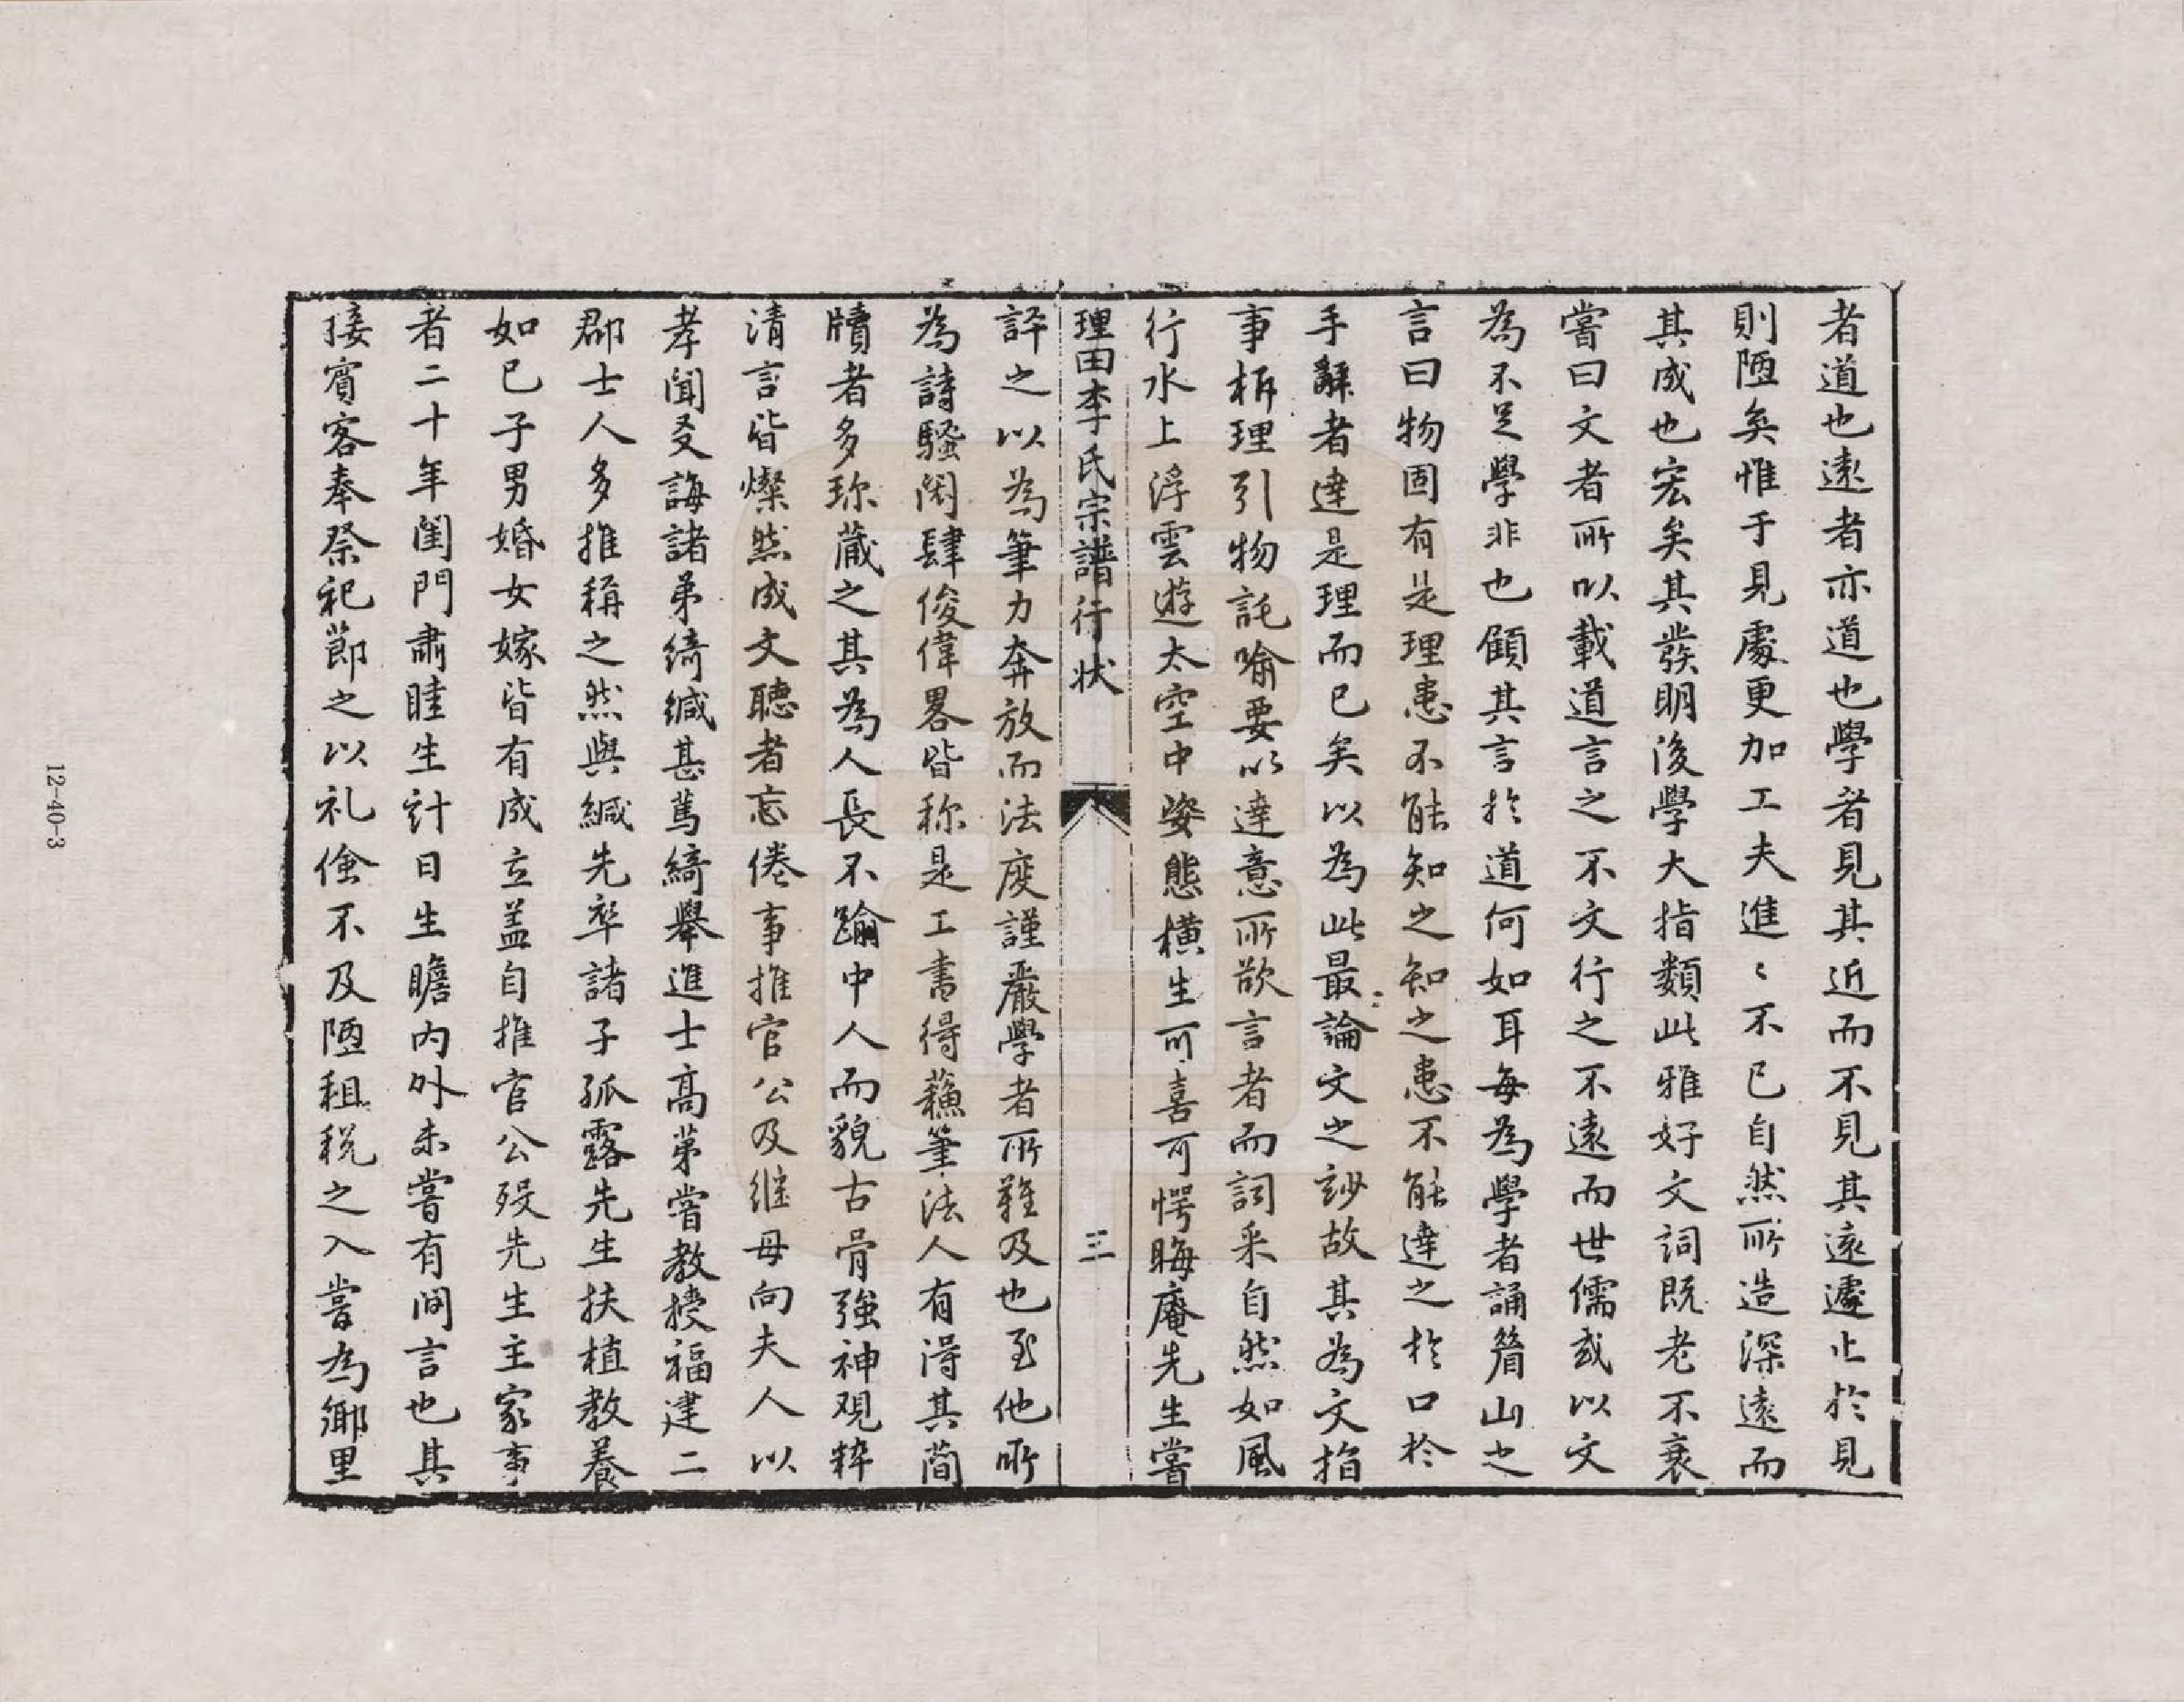 者道也遠者亦道也學者見其近而不見其遠遽止於見
則陋矣惟于見處更加工夫進〻不已自然所造深遠而
其成也宏矣其發明後學大指類此雅好文詞既老不衰
嘗曰文者所以載道言之不文行之不遠而世儒或以文
為不足學非也顧其言於道何如耳每為學者誦眉山之
言曰物固有是理患不能知之知之患不能達之於口於
手辭者達是理而已矣以為此最論文之妙故其為文指
事析理引物託喻要以達意所欲言者而詞采自然如風
行水上浮雲遊太空中姿態橫生可喜可愕晦庵先生嘗
理田李氏宗譜行狀 三
評之以為筆力奔放而法度謹嚴學者所難及也至他所
為詩騷閎肆俊偉畧皆称是工書得蘇筆法人有得其蕳
牘者多珎藏之其為人長不踰中人而貌古骨強神观粹
清言皆燦然成文聽者忘倦事推官公及継母向夫人以
孝聞友誨諸弟綺緘甚篤綺舉進士高苐嘗教授福建二
郡士人多推稱之然與緘先卒諸子孤露先生扶植教養
如已子男婚女嫁皆有成立盖自推官公殁先生主家事
者二十年閨門肅睦生計日生贍內外未嘗有间言也其
接賓客奉祭祀莭之以礼儉不及陋租税之入嘗為鄉里
12-40-3